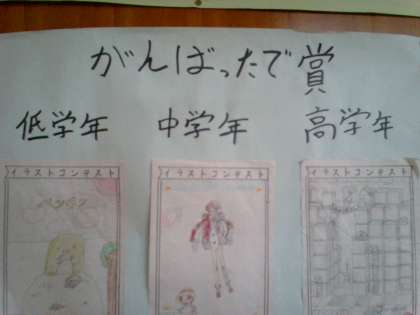 がんばったで賞
低学年 中学年 高学年
イラストコンテスト イラストコンテスト イラストコンテスト